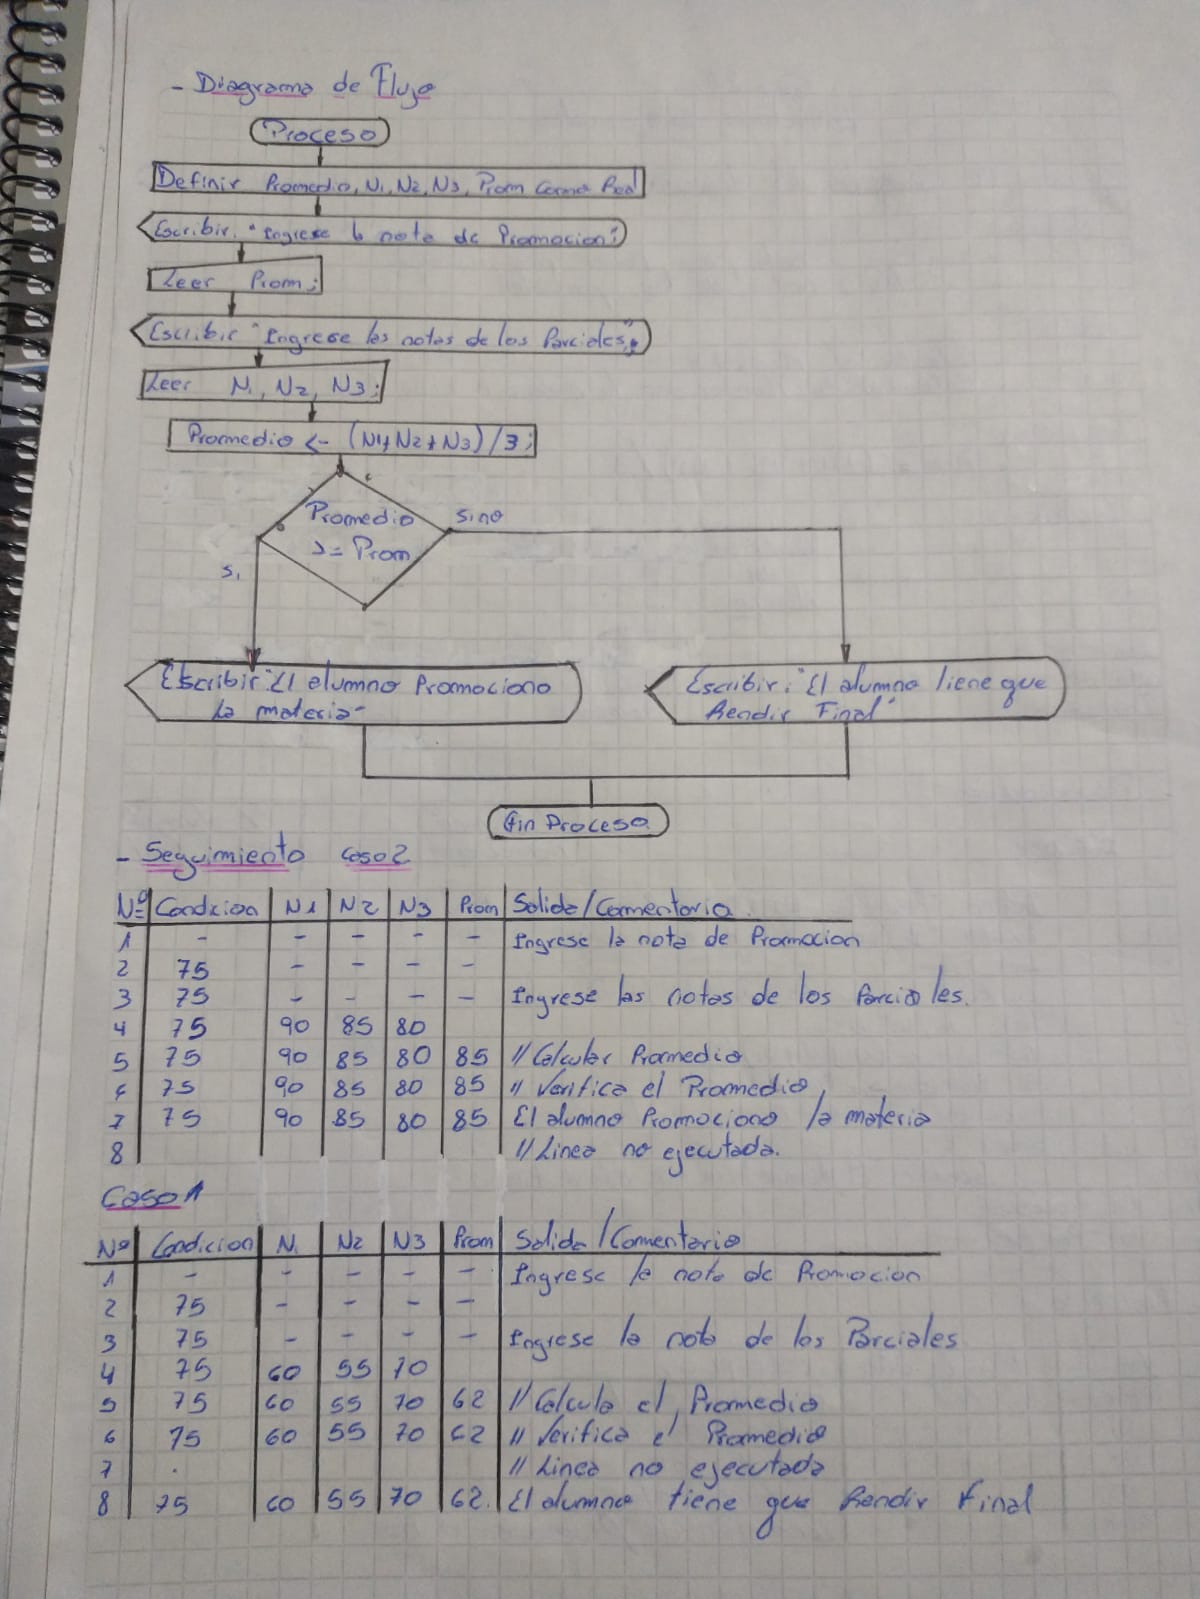 - Diagrama de Flujo
Proceso
Definir Promedio, N1, N2, N3, Prom Como Real
Escribir. "Ingrese la nota de Promocion";
Leer Prom;
Escribir "Ingrese las notas de los Parciales";
Leer N1, N2, N3;
Promedio <- (N1+N2+N3)/3;
Promedio
>= Prom
Sino
Si
Escribir "El alumno Promociono
la materia"
Escribir: "El alumno tiene que
Rendir Final"
Fin Proceso
- Seguimiento Caso 2
Nº Condicion N1 N2 N3 Prom Salida/Comentario
1 - - - - - Ingrese la nota de Promocion
2 75 - - - -
3 75 - - - - Ingrese las notas de los Parciales.
4 75 90 85 80
5 75 90 85 80 85 // Calcular Promedio
6 75 90 85 80 85 // Verifica el Promedio
7 75 90 85 80 85 El alumno Promociono la materia
8 // Linea no ejecutada.
Caso 1
Nº Condicion N1 N2 N3 Prom Salida/Comentario
1 - - - - - Ingrese la nota de Promocion
2 75 - - - -
3 75 - - - - Ingrese la nota de los Parciales
4 75 60 55 70
5 75 60 55 70 62 // Calcula el Promedio
6 75 60 55 70 62 // Verifica el Promedio
7 // Linea no ejecutada
8 75 60 55 70 62. El alumno tiene que Rendir Final